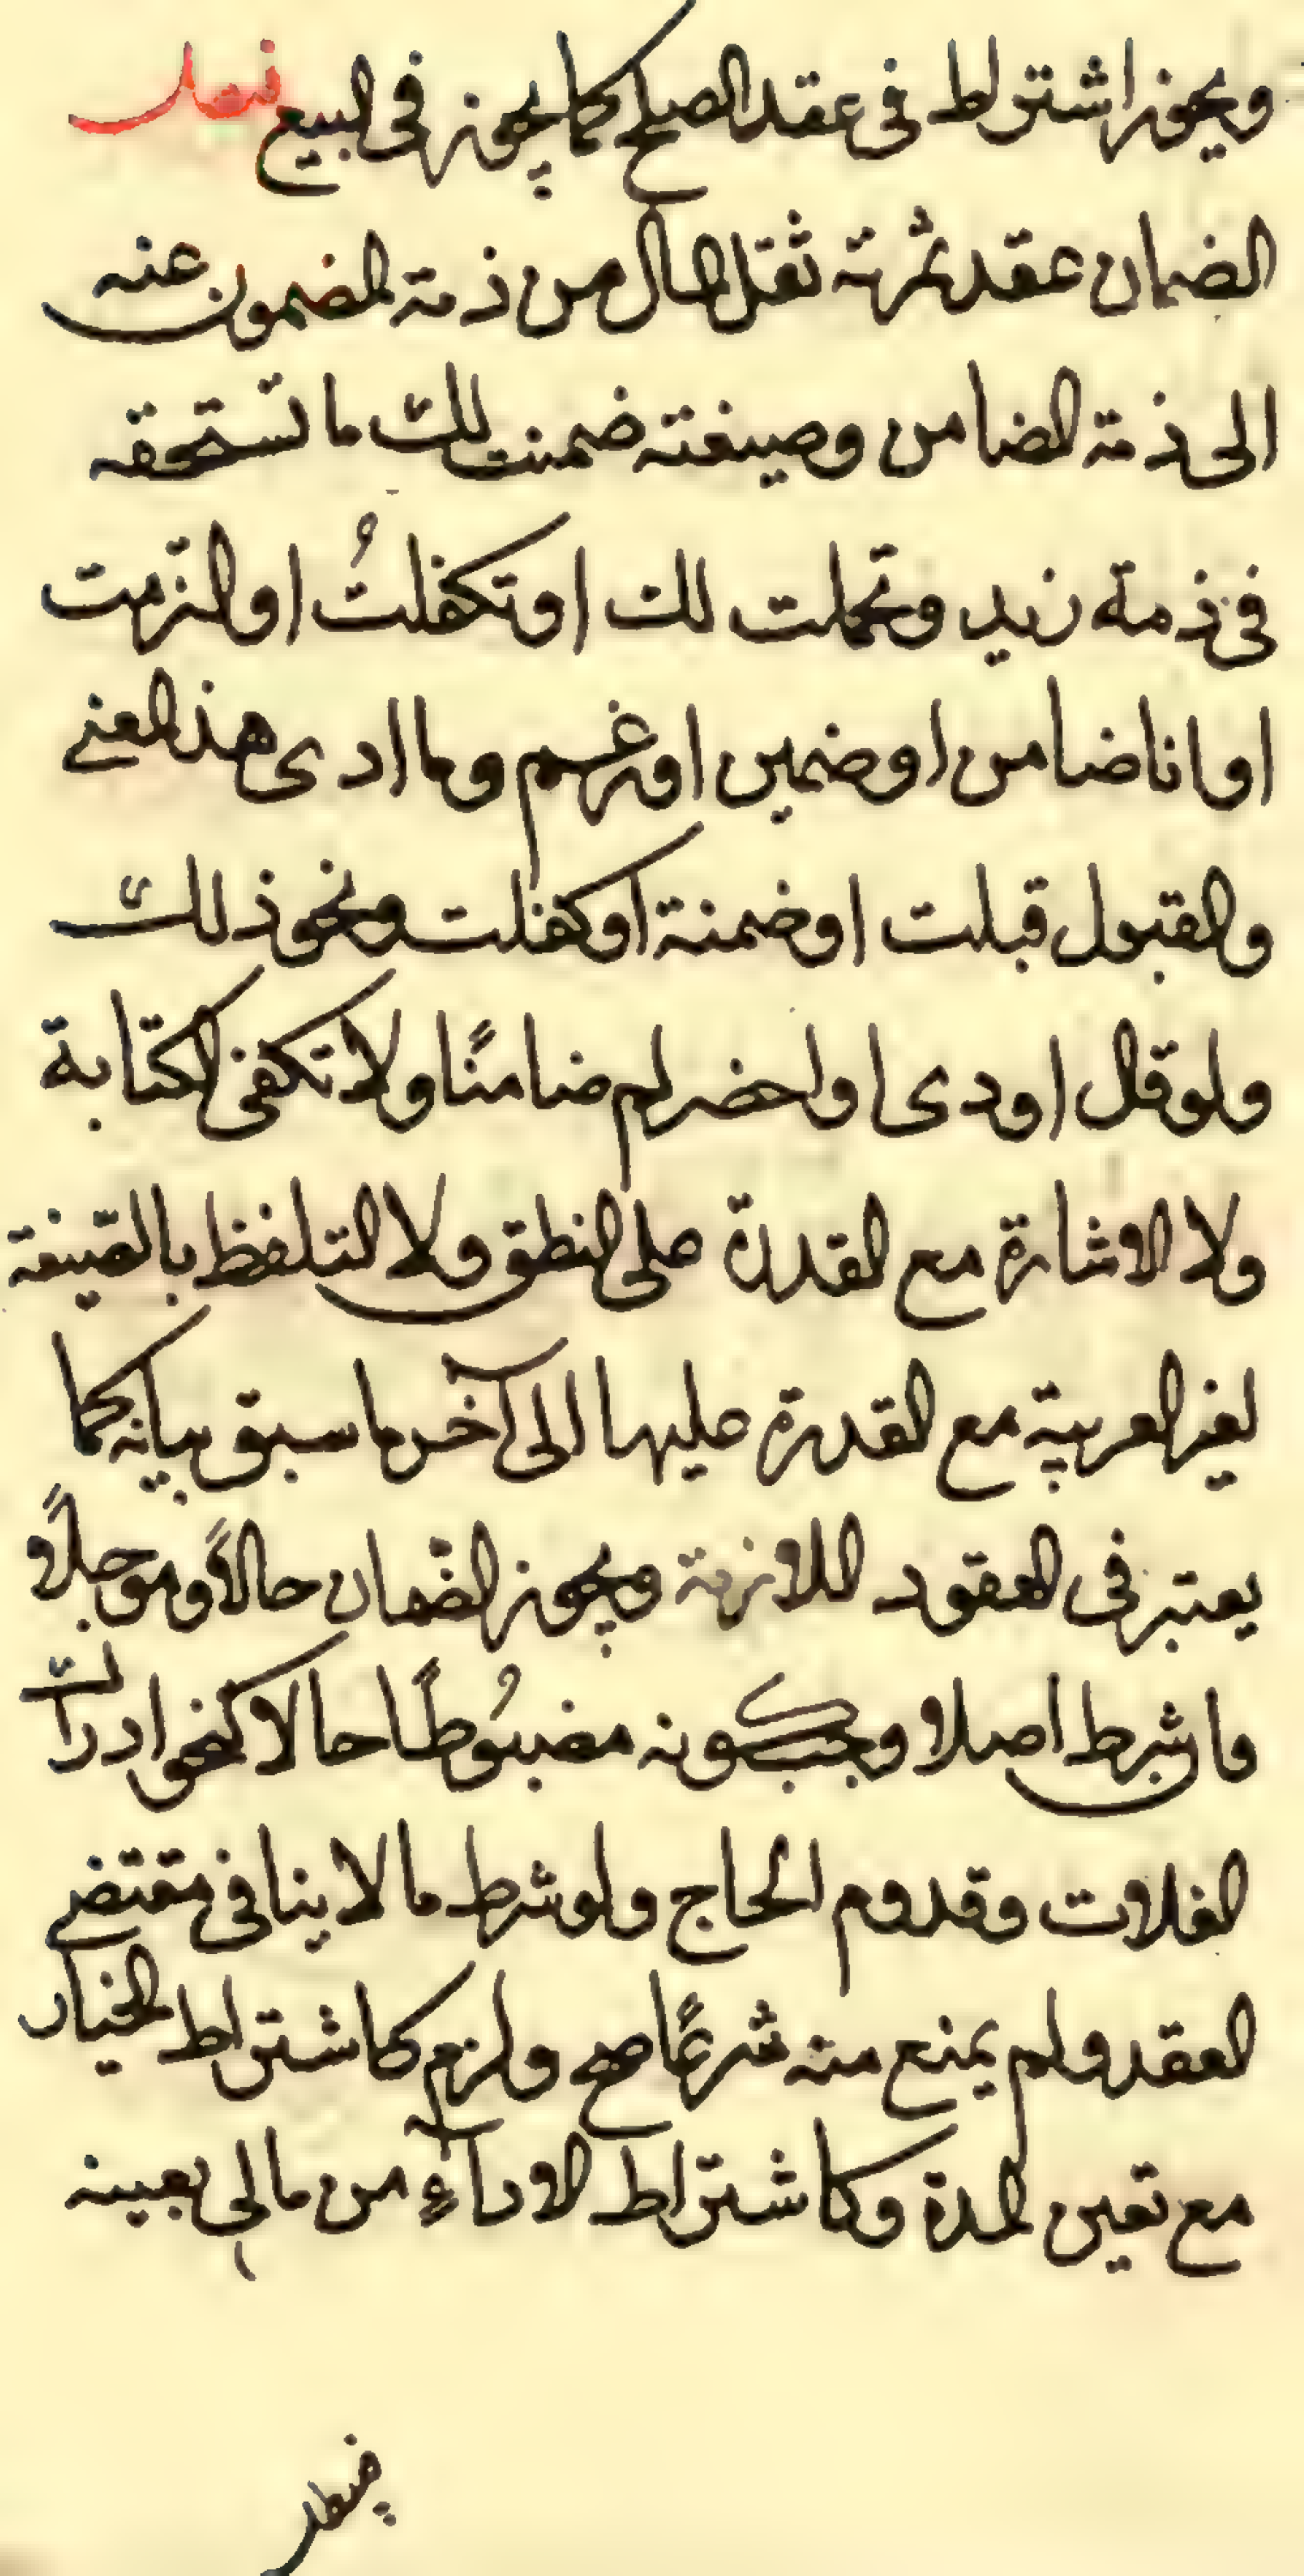 ويجوز اشتراط في عقد الصلح كما يجوز في البيع فصل
الضمان عقد ثمرته ثقل المال من ذمة المضمون عنه
الى ذمة الضامن وصيغته ضمنت لك ما تستحقه
في ذمة زيد وتحملت لك او تكفلتُ او التزمت
او انا ضامن او ضمين او غريم وما ادى هذا المعنى
والقبول قبلت او ضمنة او كفلت ونحو ذلك
ولو قال اودى اواحضر لم ضامنًا ولا تكفى الكتابة
ولا الاشارة مع القدرة على النطق ولا التلفظ بالصّيغة
لغير العربية مع القدرة عليها الى آخر ما سبق بيانه كما
يعتبر في العقود اللازمة ويجوز الضّمان حالاً وموجلاً و
ما شرط اصلا ويجب كونه مضبُوطًا حالا كنحو ادراك
الغلات وقدوم الحاج ولو شرط ما لا ينافى مقتضى
العقد ولم يمنع منه شرعًا صح ولزم كاشتراط الخيار
مع تعين المدة وكاشتراط الاداۤءِ من مال بعينه